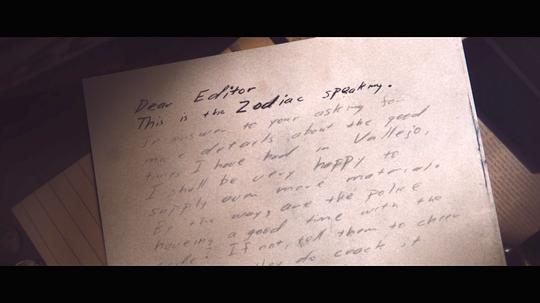 Dear Editor
This is the Zodiac speaking.
In answer to your asking for
more details about the good
times I have had in Vallejo,
I shall be very happy to
supply even more material.
By the way, are the police
haveing a good time with the
code? If not, tell them to cheer
do crack it